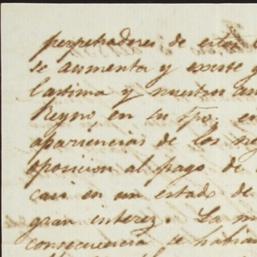 perpetradores de estos
se aumenta y existe
lastima y nuestro
Reyno, en su
apariencias de los
oposicion al pago de
casi en un estado de
gran interez. La
consecuencia se habian